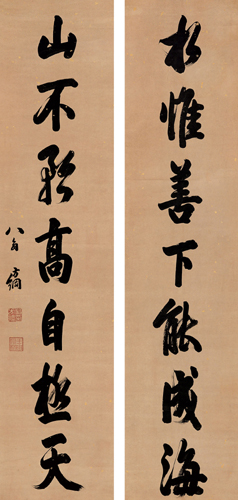 水惟善下能成海
山不矜高自極天
方綱